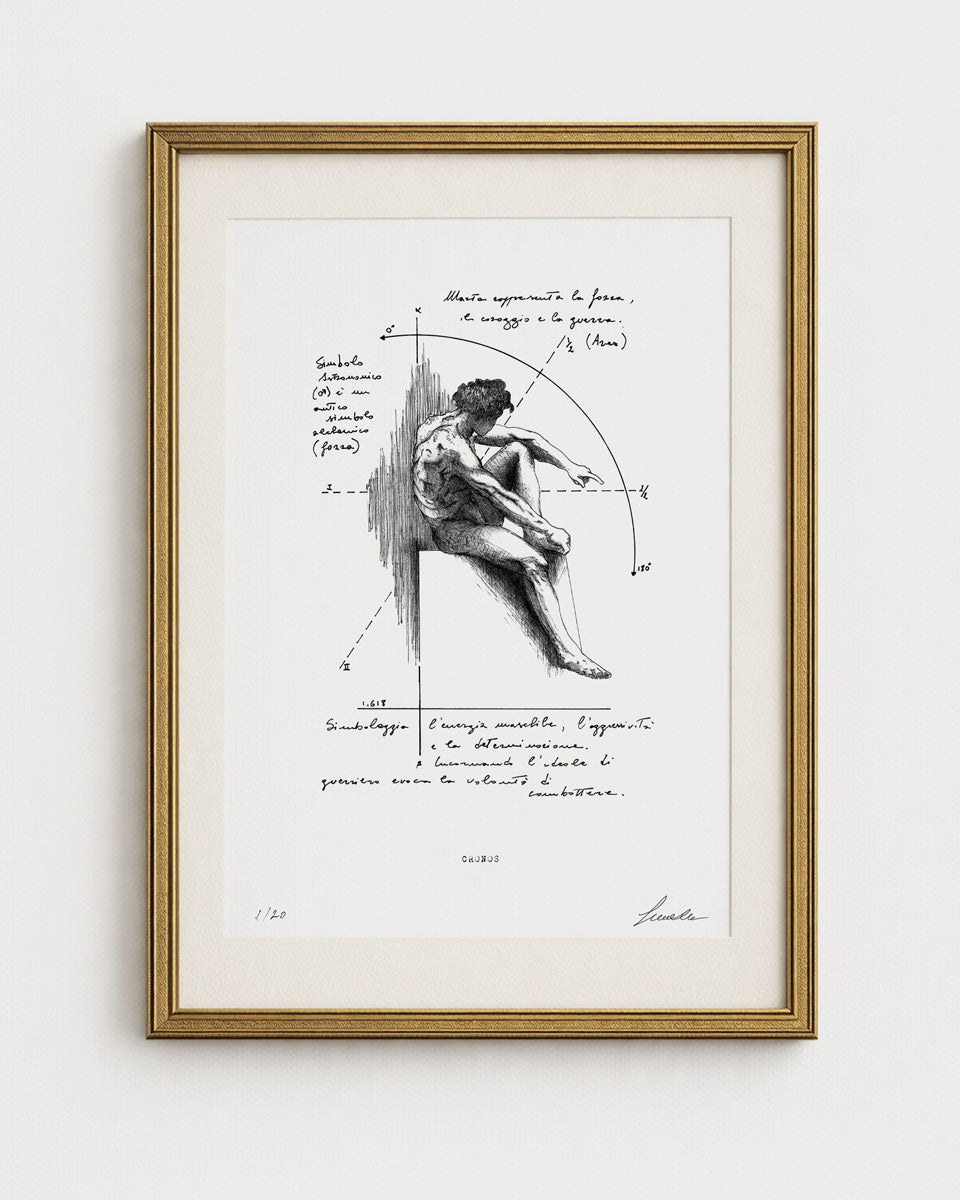 Marte rappresenta la forza,
il coraggio e la guerra.
(Ares)
0°
1/2
Simbolo
Astronomico
(♂) è un
antico
simbolo
alchemico
(forza)
I
1/2
180°
II
1.618
Simboleggia l'energia maschile, l'aggressività
e la determinazione.
Incarnando l'ideale di
guerriero evoca la volontà di
combattere.
CRONOS
1/20